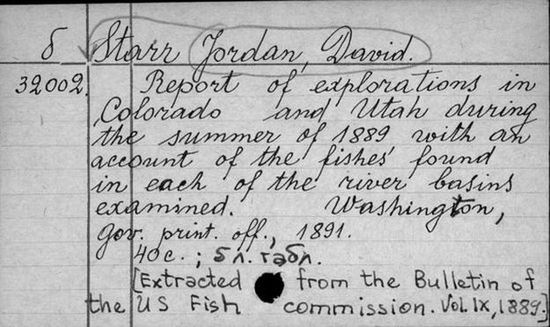 б Starr Jordan, David.
32002. Report of explorations in
Colorado and Utah during
the summer of 1889 with an
account of the fishes found
in each of the river basins
examined. Washington,
gov. print. off., 1891.
40 c.; 5 л. табл.
[Extracted from the Bulletin of
the US Fish commission. Vol. IX, 1889.]